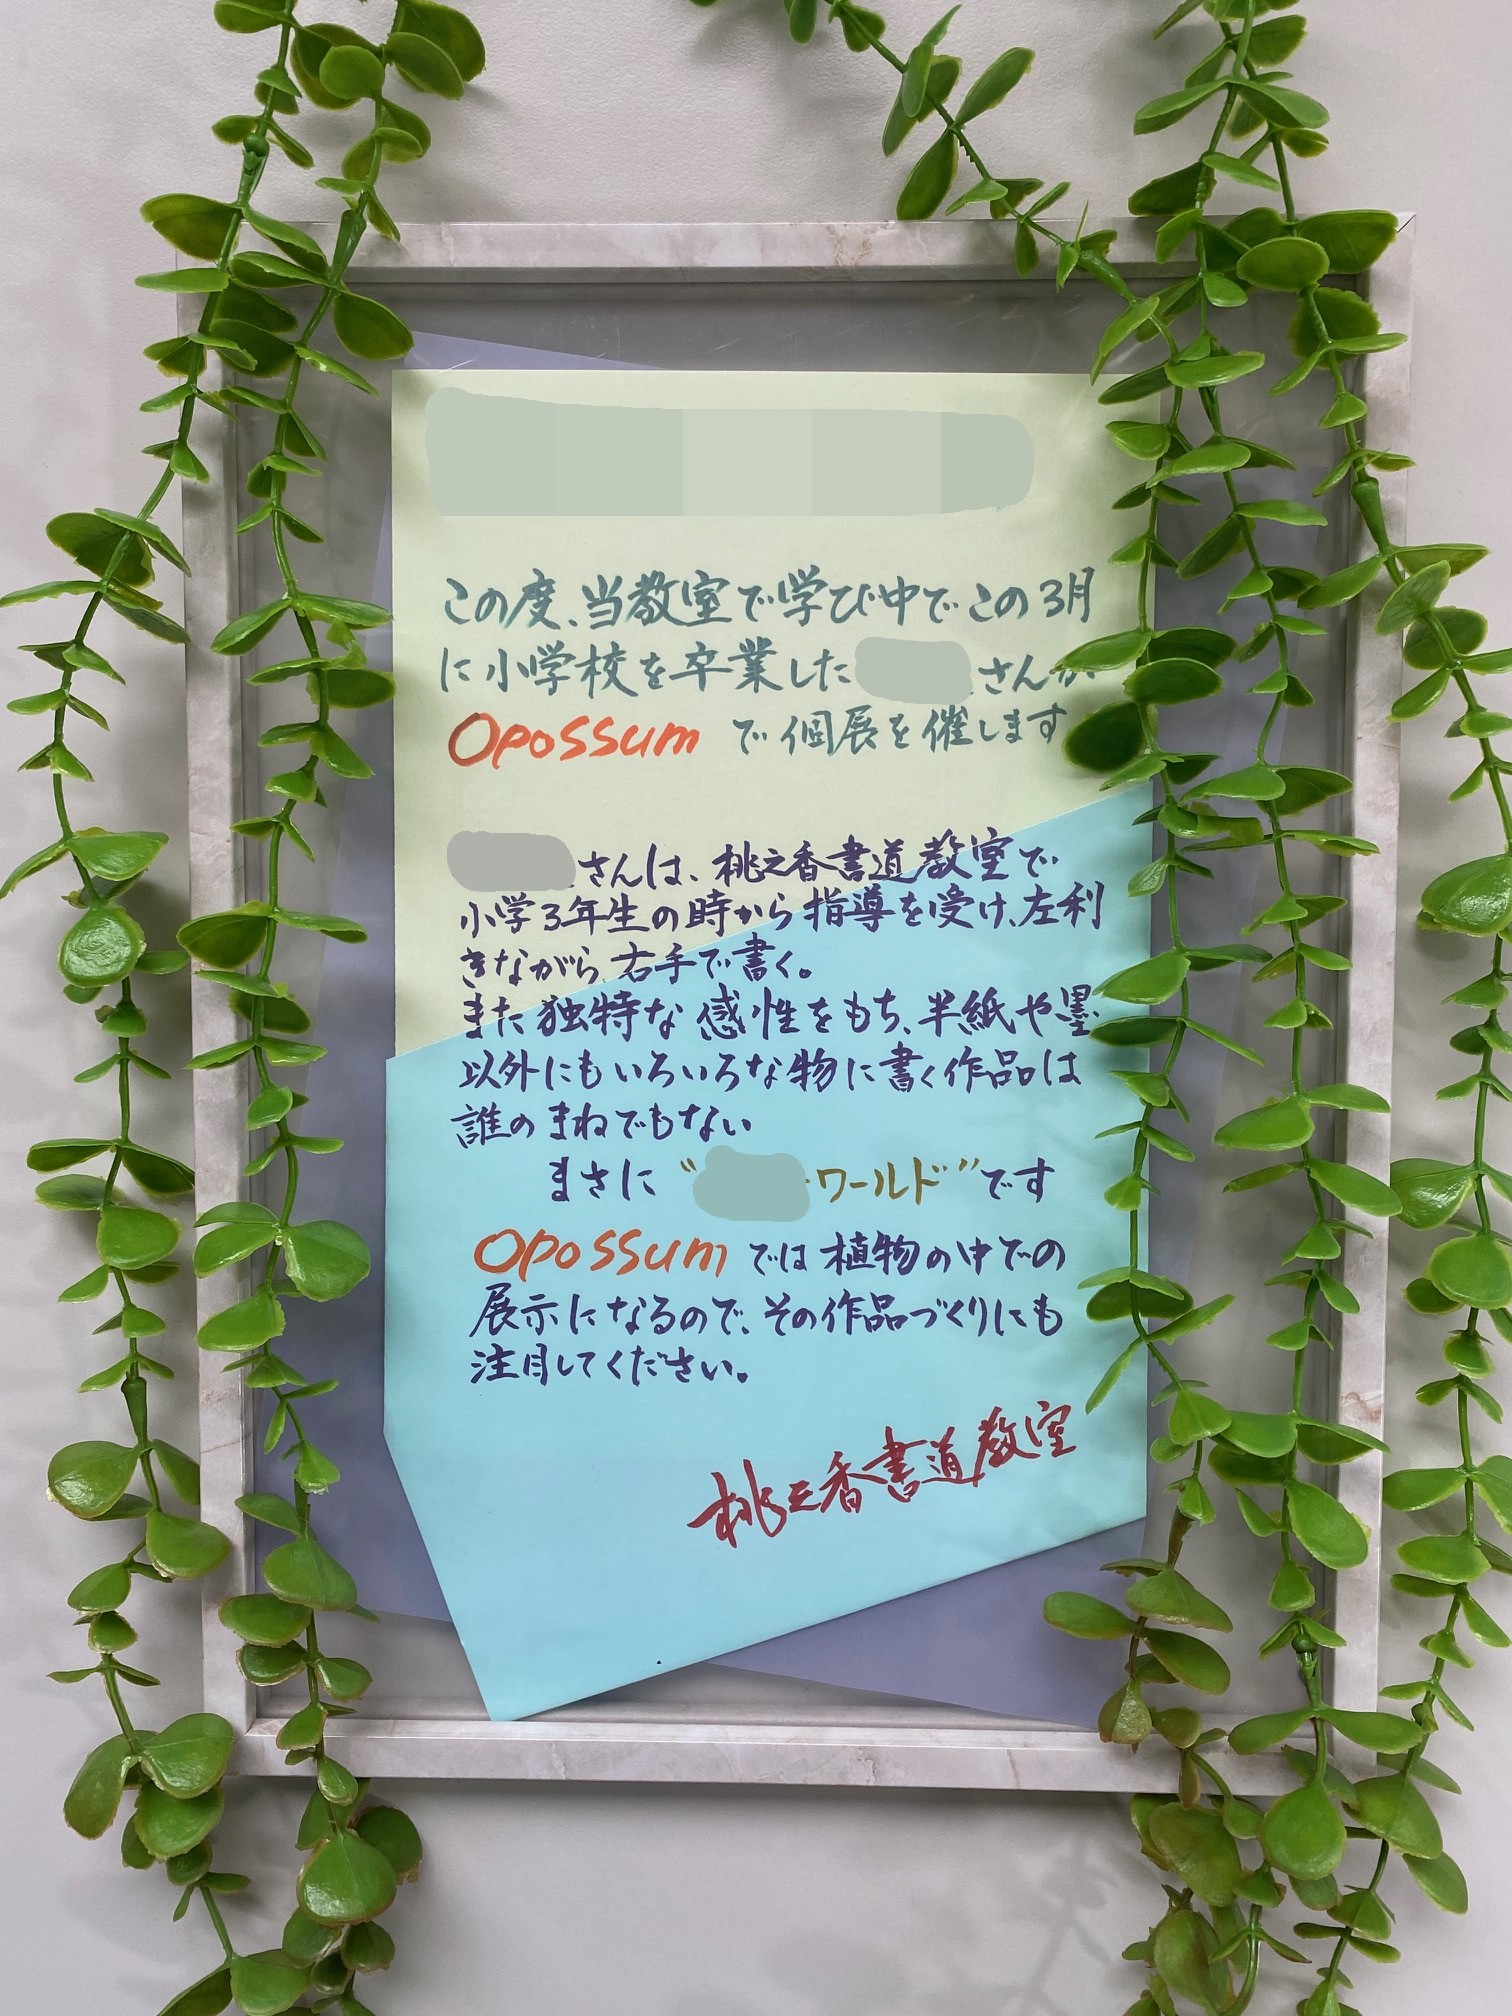 この度、当教室で学び中でこの3月
に小学校を卒業した さんが
Opossum で個展を催します
さんは、桃之香書道教室で
小学3年生の時から指導を受け、左利
きながら、右手で書く。
また独特な感性をもち、半紙や墨
以外にもいろいろな物に書く作品は
誰のまねでもない
まさに “ ワールド”です
Opossum では植物の中での
展示になるので、その作品づくりにも
注目してください。
桃之香書道教室